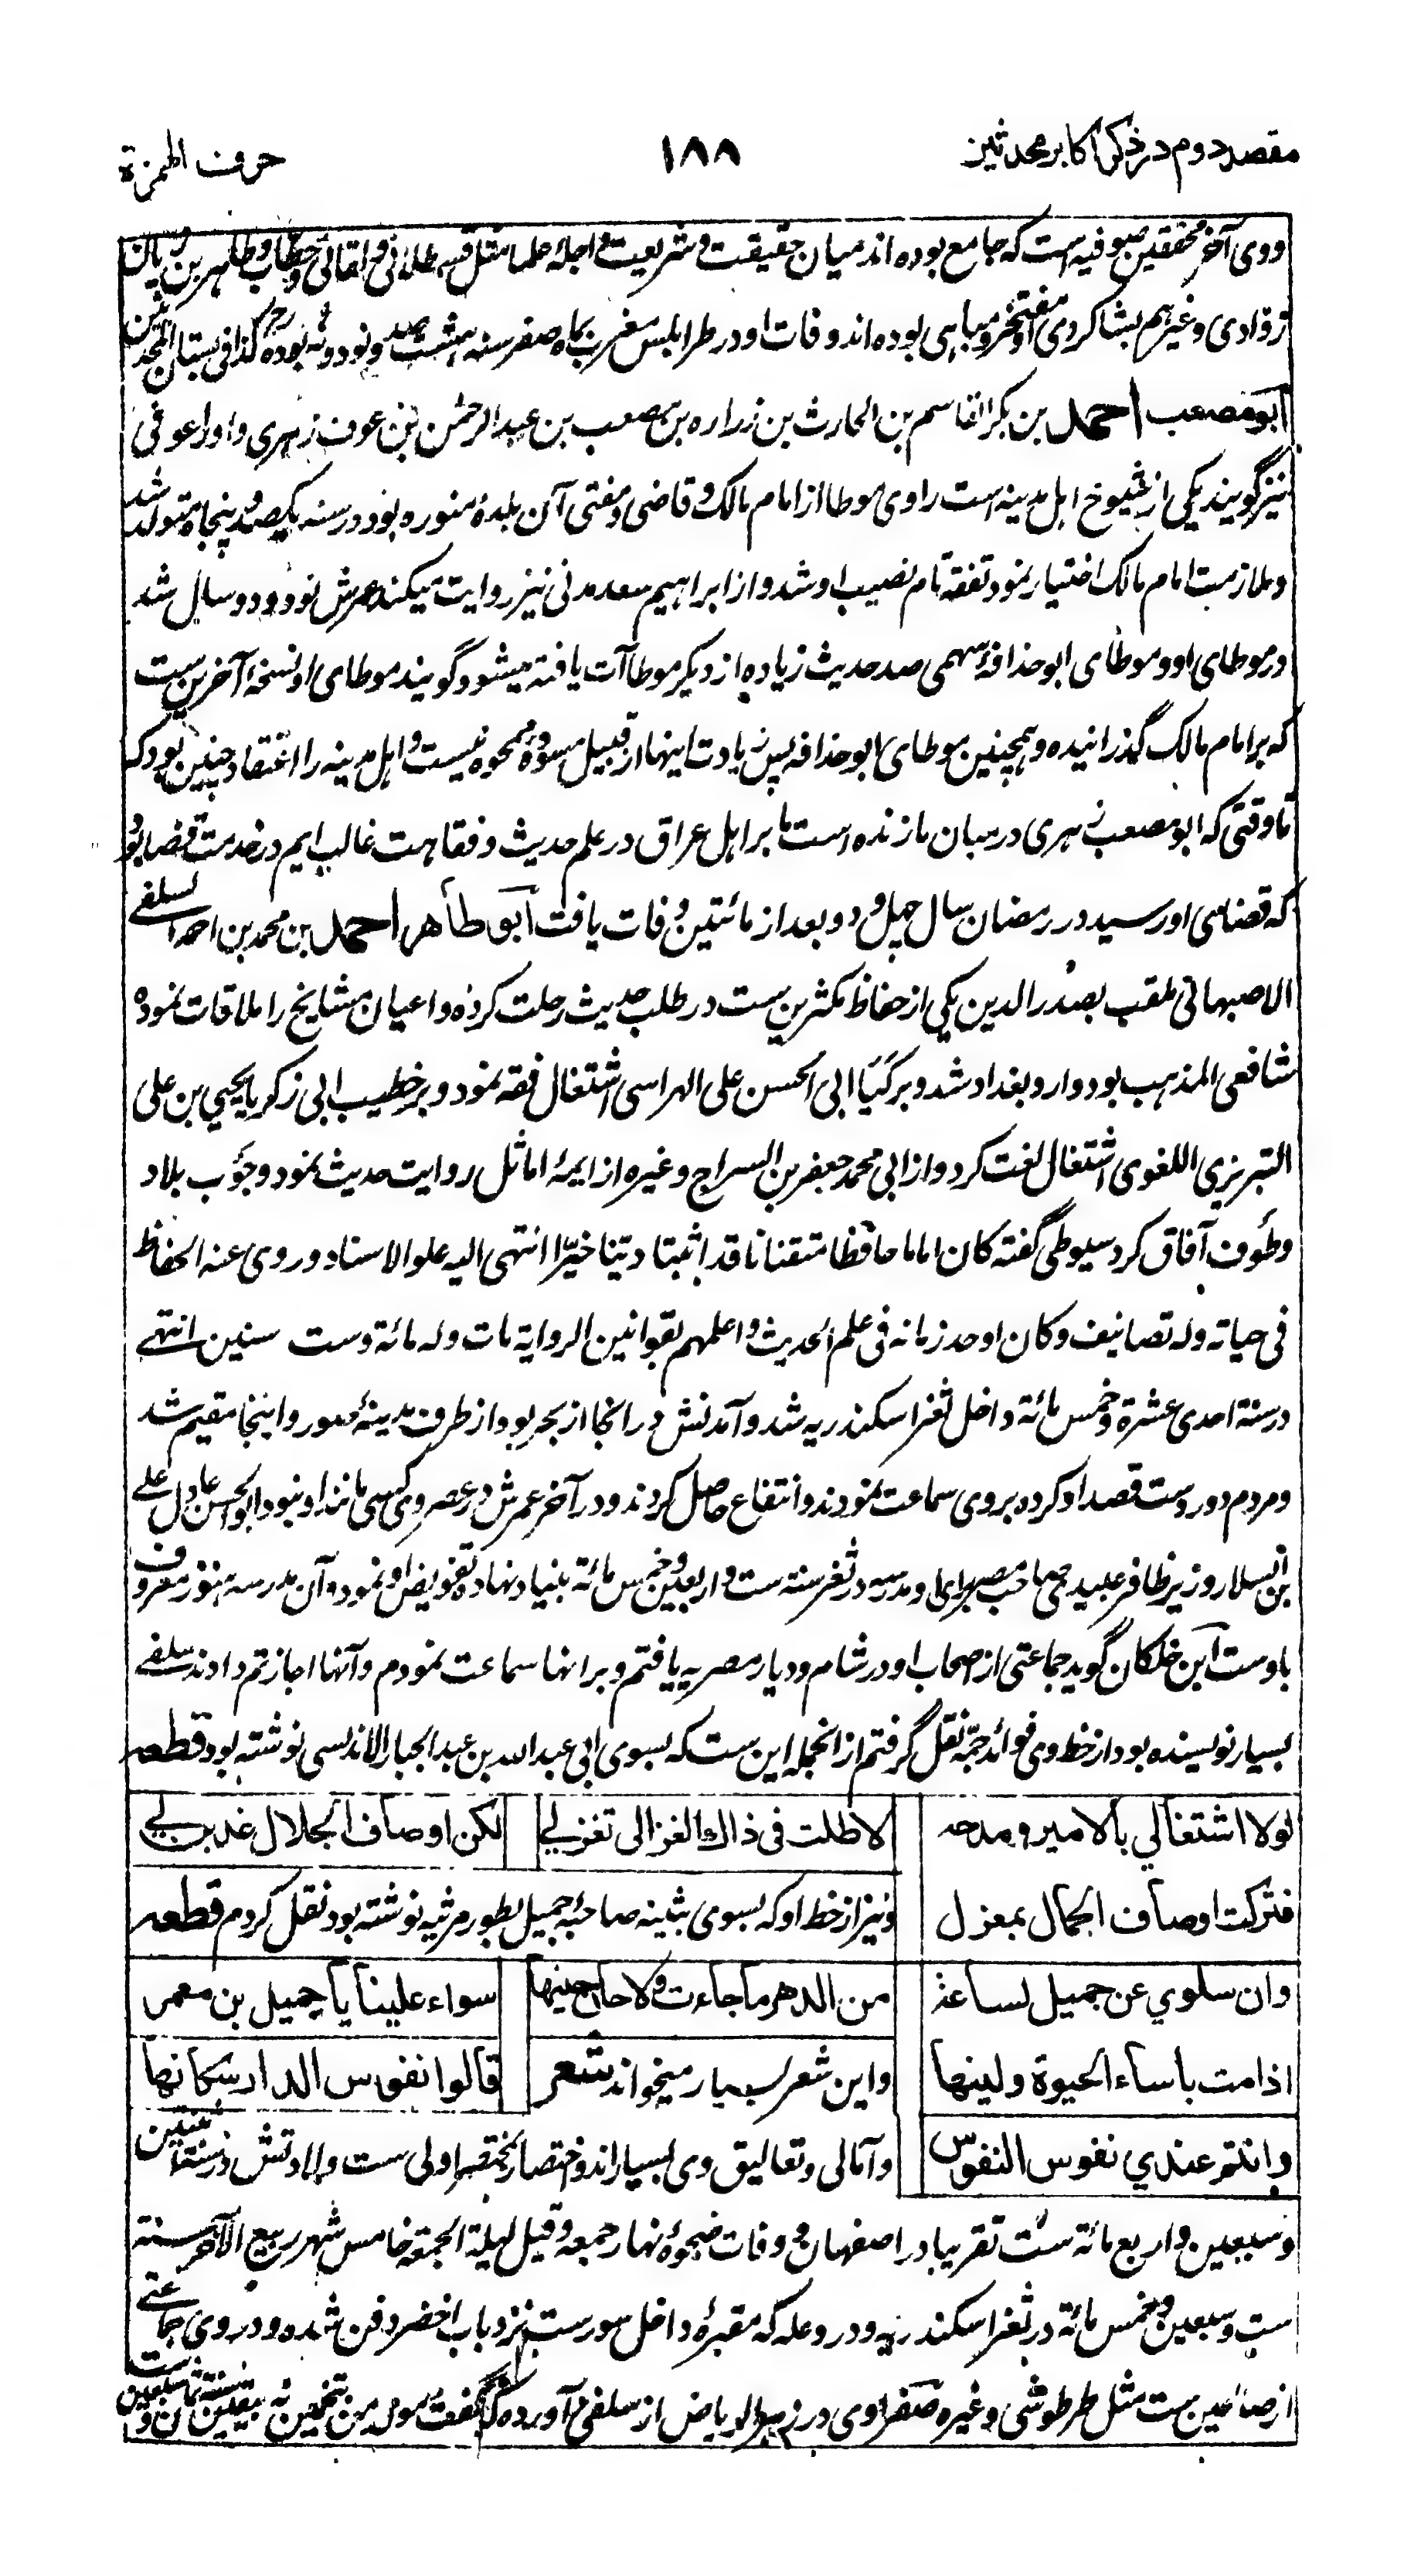 مقصد دوم در ذکر اکابر محدثین
۱۸۸
حرف الهمزة
و وی آخر محققین صوفیه است که جامع بوده اند میان حقیقت و شریعت و اجله علما مثل قسطلانی و لقانی و حطاب و طاهر بن زیان
زواوی و غیرهم بشاگردی او مفتخر و مباهی بوده اند وفات او در طرابلس مغرب بماه صفر سنه هشت صد و نود و نه بوده رح کذا فی بستان المحدثین
ابو مصعب احمد بن بکر القاسم بن الحارث بن زراره بن مصعب بن عبد الرحمن بن عوف زهری و او را عوفی
نیز گویند یکی از شیوخ اهل مدینه است راوی موطا از امام مالک و قاضی و مفتی آن بلدهٔ منوره بود در سنه یکصد و پنجاه متولد شد
و ملازمت امام مالک اختیار نمود تفقه تام نصیب او شد و از ابراهیم سعد مدنی نیز روایت میکند عمرش نود و دو سال شد
در موطای او و موطای ابو حذافهٔ سهمی صد حدیث زیاده از دیگر موطآت یافته میشود گویند موطای او نسخهٔ آخرین ست
که بر امام مالک گذرانیده و همچنین موطای ابو حذافه پس زیادت اینها از قبیل مسودهٔ ممحوه نیست و اهل مدینه را اعتقاد چنین بود که
تا وقتی که ابو مصعب زهری در میان ما زنده است ما بر اهل عراق در علم حدیث و فقاهت غالب ایم در خدمت قضا بود
که قضای او رسید در رمضان سال چهل و دو بعد از مائتین وفات یافت ابو طاهر احمد بن محمد بن احمد السلفی
الاصبهانی ملقب بصدر الدین یکی از حفاظ مکثرین ست در طلب حدیث رحلت کرده و اعیان مشایخ را ملاقات نموده
شافعی المذهب بود وارد بغداد شد و بر کیا ابی الحسن علی الهراسی اشتغال فقه نمود و بر خطیب ابی زکریا یحیی بن علی
التبریزی اللغوی اشتغال لغت کرد و از ابی محمد جعفر بن السراج و غیره از ایمهٔ اماثل روایت حدیث نمود و جوب بلاد
و طوف آفاق کرد سیوطی گفته کان اماما حافظا متقنا ناقدا ثبتا دینا خیرا انتهی الیه علو الاسناد و روی عنه الحفاظ
فی حیاته وله تصانیف و کان اوحد زمانه فی علم الحدیث و اعلمهم بقوانین الروایة مات وله مائة وست سنین انتهی
در سنة احدی عشرة و خمس مائة داخل ثغر اسکندریه شد و آمدنش در آنجا از بحر بود از طرف مدینهٔ صور و اینجا مقیم شد
و مردم دور دست قصد او کرده بروی سماعت نمودند و انتفاع حاصل کردند و در آخر عمرش در عصر وی کسی مانند او نبود ابو الحسن عادل علی
بن السلار وزیر ظافر عبیدی صاحب مصر برای او مدرسه در ثغر سنه ست و اربعین و خمس مائة بنیاد نهاده تفویض او نمود و آن مدرسه هنوز معروف
باوست ابن خلکان گوید جماعتی از اصحاب او در شام و دیار مصریه یافتم و بر آنها سماعت نمودم و آنها اجازتم دادند سلفی
بسیار نویسنده بود از خط وی فوائد جمه نقل گرفتم از انجمله این ست که بسوی ابی عبد الله بن عبد الجبار الاندلسی نوشته بود قطعه
لولا اشتغالي بالامير ومدحه
لاطلت فی ذاك الغزالی تغزلي
لكن اوصاف الجلال عذبن لي
فتركت اوصاف الجمال بمعزل
و نیز از خط او که بسوی بثینه صاحبهٔ جمیل بطور مرثیه نوشته بود نقل کردم قطعه
وان سلوي عن جميل لساعة
من الدهر ما جاءت ولا حان حينها
سواء علينا يا جميل بن معمر
اذا مت باساء الحيوة ولينها
و این شعر بسیار میخواند شعر
قالوا نفوس الدار سكانها
وانتم عندي نفوس النفوس
و امالی و تعالیق وی بسیار اند و اختصار بمختصر اولی ست ولادتش در سنة اثنتین
و سبعین و اربع مائة ست تقریبا در اصفهان و وفات ضحوهٔ نهار جمعه و قیل لیلة الجمعة خامس شهر ربیع الآخر سنة
ست و سبعین و خمس مائة در ثغر اسکندریه و در وعله که مقبرهٔ داخل سورست نزد باب اخضر دفن شده و در وی جماعتی
از صالحین ست مثل طرطوشی و غیره صفراوی در زهر الریاض از سلفی آورده که گفت مولد من بتخمین نه بیقین سنة ثمان و سبعین ست